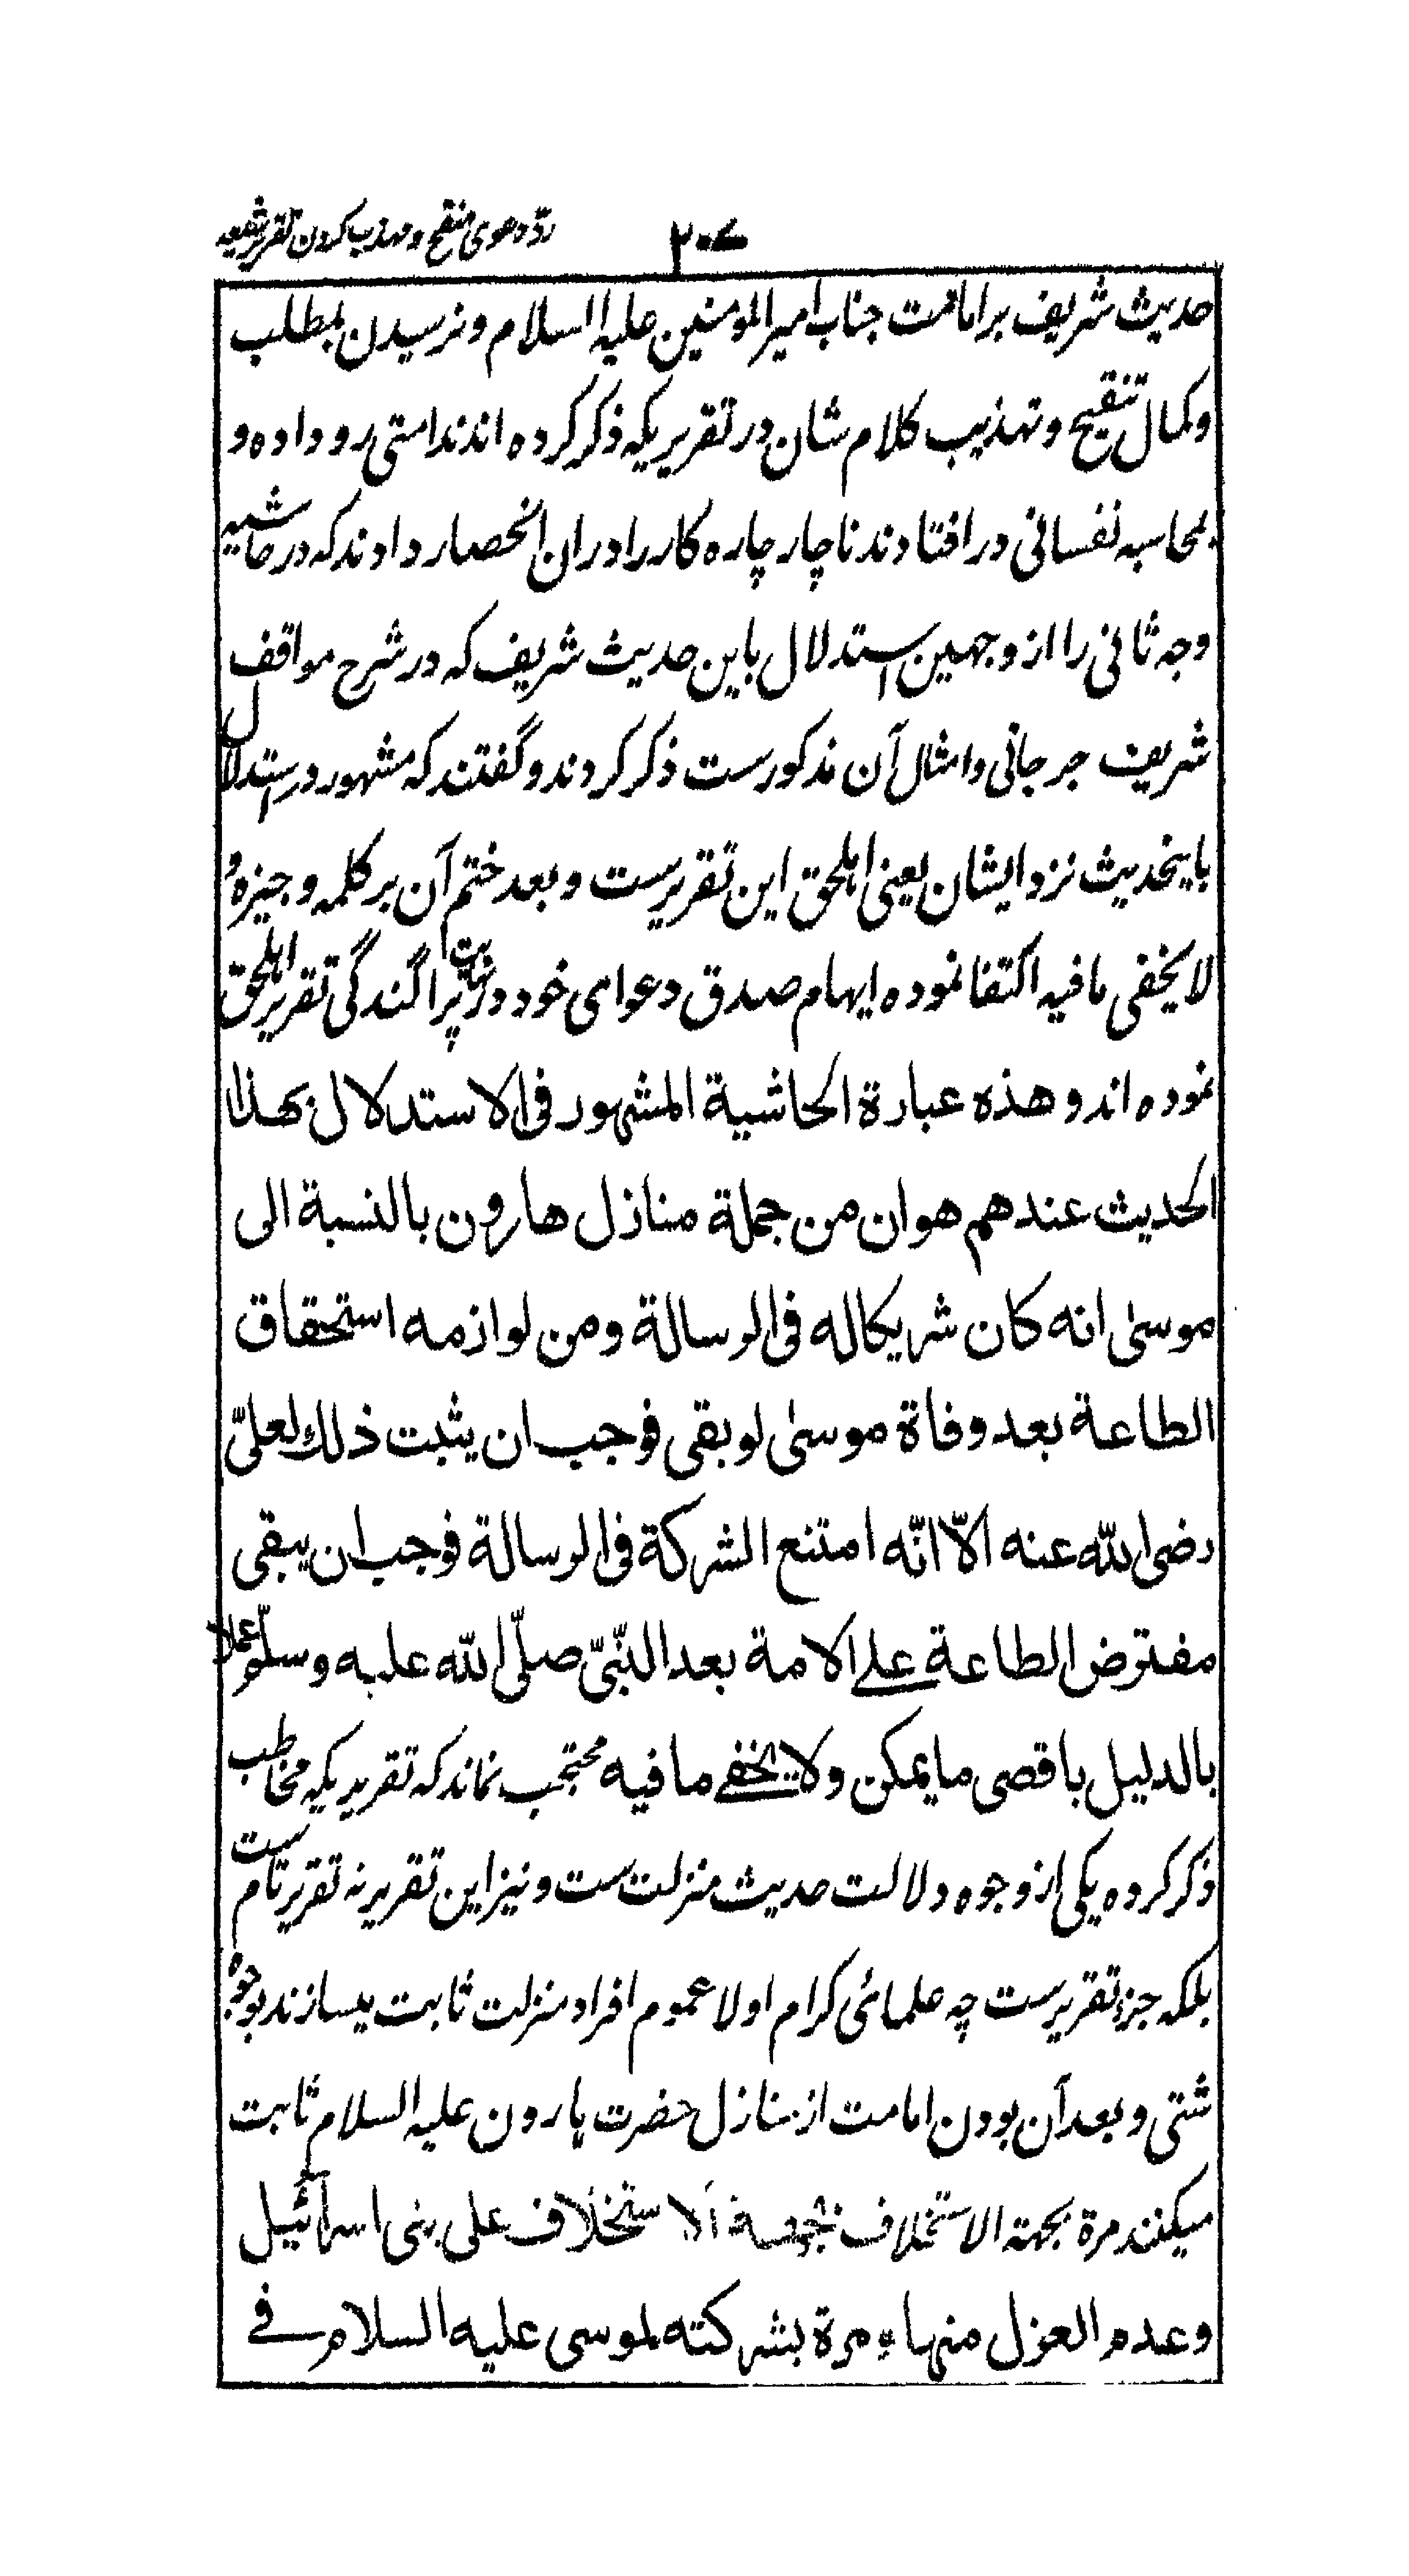 ردّ دعوی منقح و مهذب کردن تقریر شیعه
۲۰۷
حدیث شریف بر امامت جناب امیرالمومنین علیه السلام و نرسیدن بمطلب
و کمال تنقیح و تهذیب کلام شان در تقریریکه ذکر کرده اند ندامتی رو داده و
بمحاسبه نفسانی در افتادند ناچار چاره کار را در ان انحصار دادند که در حاشیه
وجه ثانی را از وجهین استدلال باین حدیث شریف که در شرح مواقف
شریف جرجانی و امثال آن مذکورست ذکر کردند و گفتند که مشهور در استدلال
باینحدیث نزد ایشان یعنی اهلحق این تقریرست و بعد ختم آن بر کلمه وجیزه و
لا یخفی ما فیه اکتفا نموده ایهام صدق دعوای خود در نهایت پراگندگی تقریر اهلحق
نموده اند و هذه عبارة الحاشیة المشهور فی الاستدلال بهذا
الحدیث عندهم هو ان من جملة منازل هارون بالنسبة الی
موسیٰ انه کان شریکا له فی الرسالة و من لوازمه استحقاق
الطاعة بعد وفاة موسیٰ لو بقی فوجب ان یثبت ذلك لعلیّ
رضی الله عنه الّا انّه امتنع الشرکة فی الرسالة فوجب ان یبقی
مفترض الطاعة علے الامة بعد النّبیّ صلّی الله علیه وسلّم عملا
بالدلیل باقصی ما یمکن ولا یخفے ما فیه محتجب نماند که تقریریکه مخاطب
ذکر کرده یکی از وجوه دلالت حدیث منزلت ست و نیز این تقریر نه تقریر تام ست
بلکه جزء تقریرست چه علمائی کرام اولا عموم افراد منزلت ثابت میسازند بوجوه
شتی و بعد آن بودن امامت از منازل حضرت هارون علیه السلام ثابت
میکنند مرة بجهته الاستخلاف الاستخلاف علی بنی اسرآئیل
و عدم العزل منها و مرة بشرکته لموسی علیه السلام فے